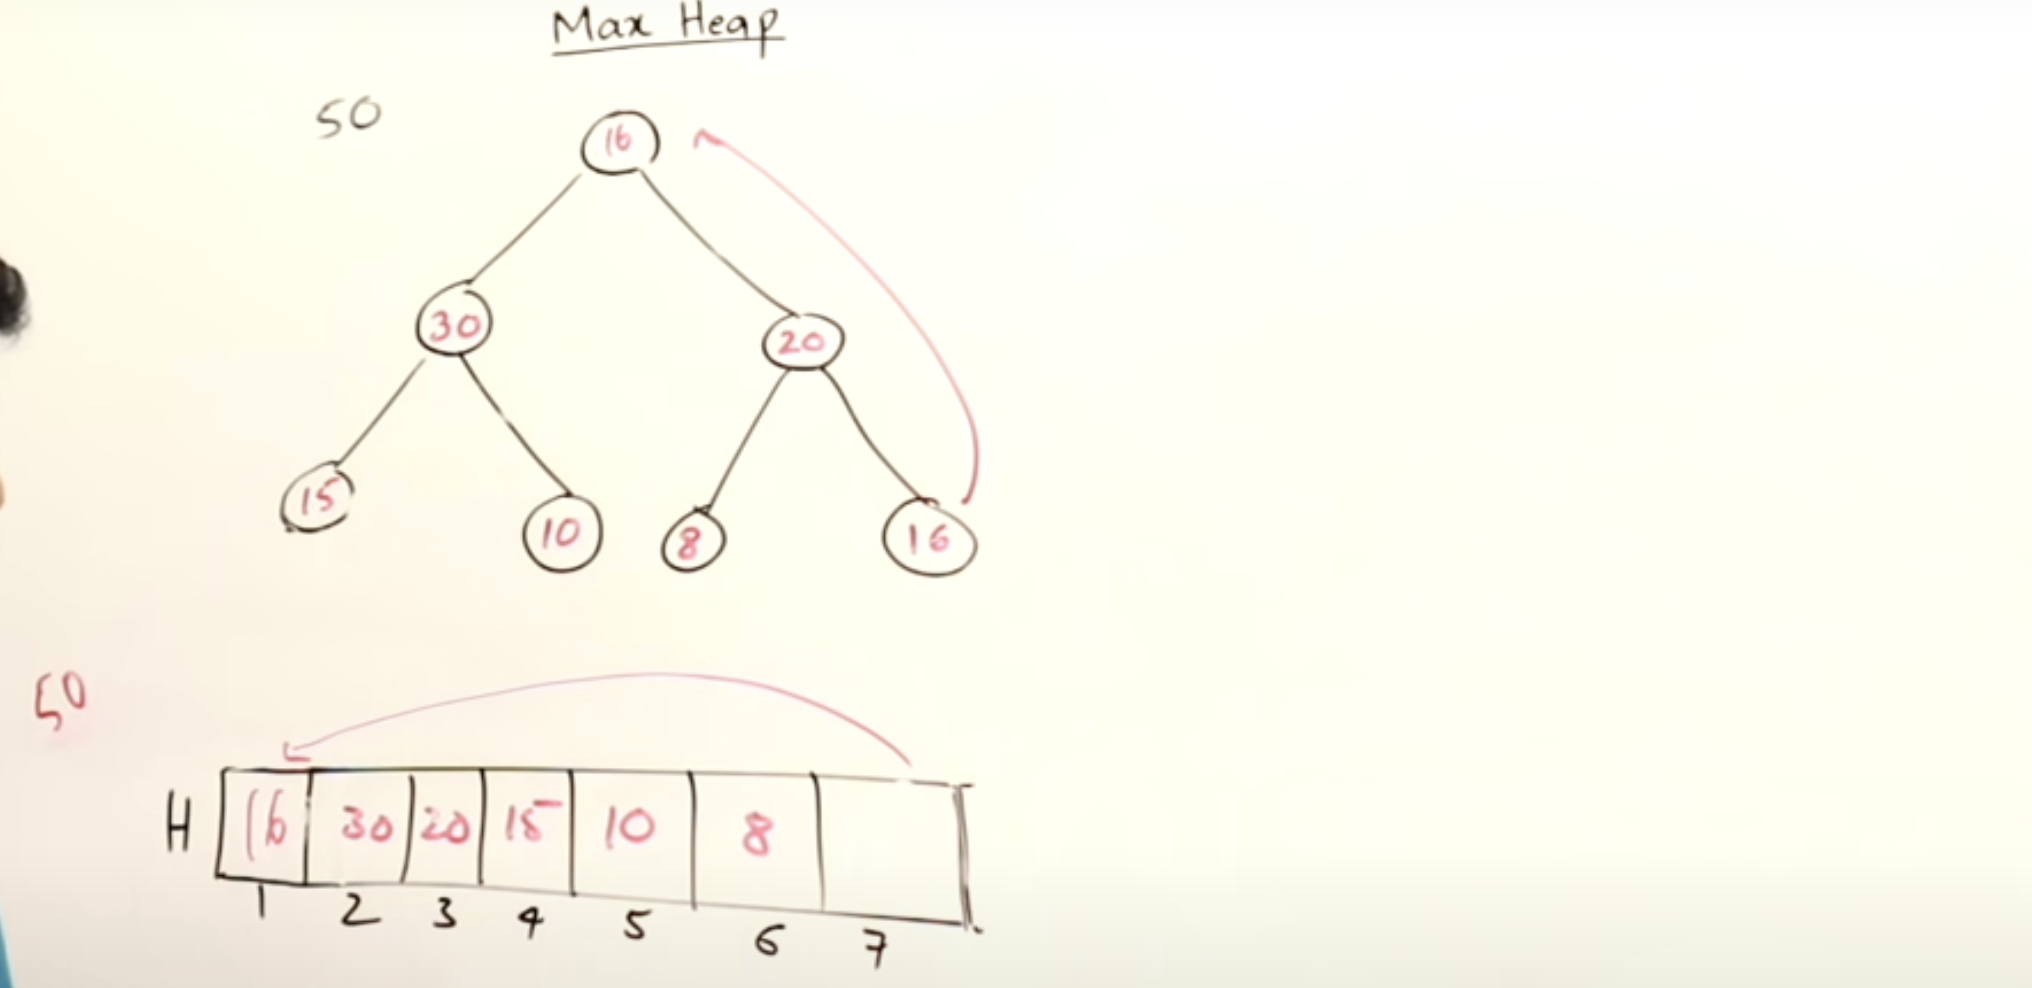 Max Heap
50
16
30
20
15
10
8
16
50
H 16 30 20 15 10 8
1 2 3 4 5 6 7